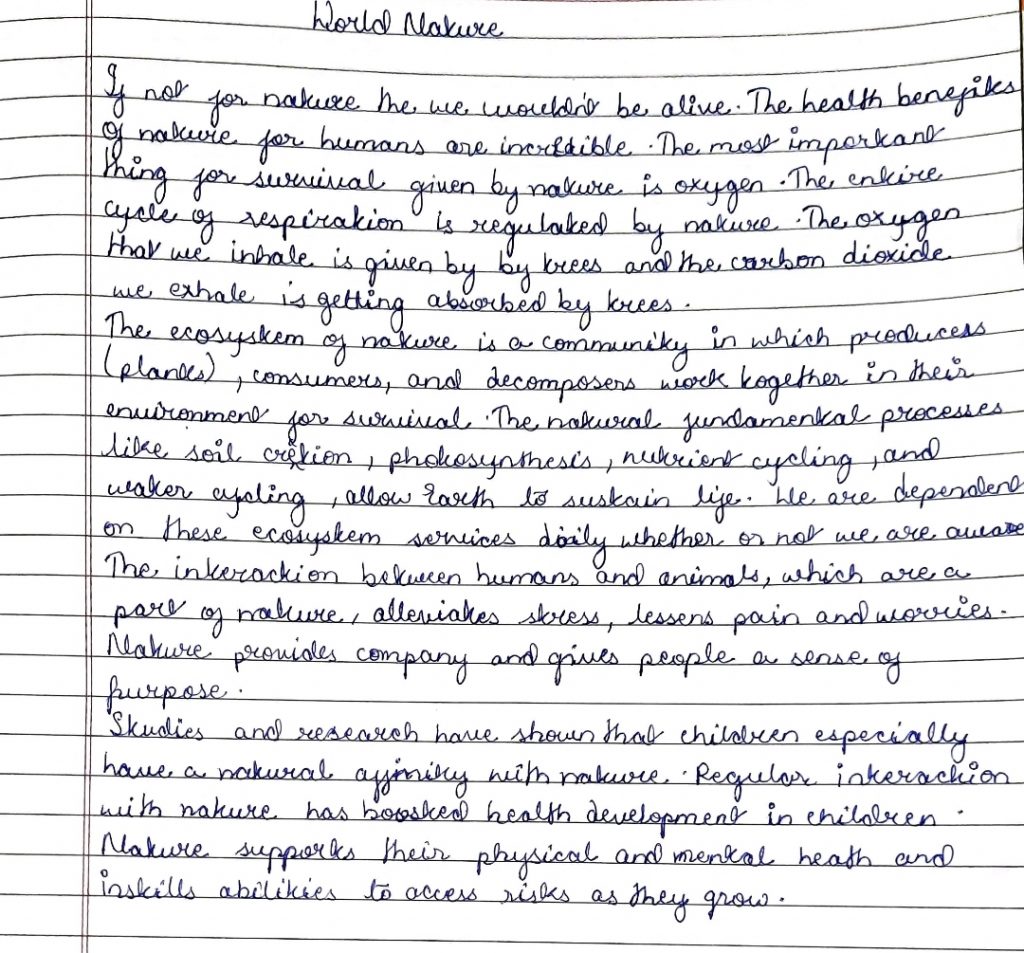 World Nature
If not for nature the we wouldn't be alive. The health benefits
of nature for humans are incredible. The most important
thing for survival given by nature is oxygen. The entire
cycle of respiration is regulated by nature. The oxygen
that we inhale is given by by trees and the carbon dioxide
we exhale is getting absorbed by trees.
The ecosystem of nature is a community in which producers
(plants), consumers, and decomposers work together in their
environment for survival. The natural fundamental processes
like soil cretion, photosynthesis, nutrient cycling, and
water cycling, allow Earth to sustain life. We are dependent
on these ecosystem services daily whether or not we are aware
The interaction between humans and animals, which are a
part of nature, alleviates stress, lessens pain and worries.
Nature provides company and gives people a sense of
purpose.
Studies and research have shown that children especially
have a natural affinity with nature. Regular interaction
with nature has boosted health development in children.
Nature supports their physical and mental heath and
instills abilities to access risks as they grow.